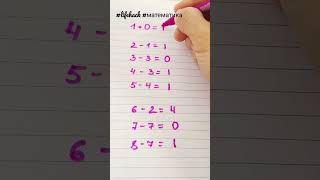 #lifehack #математика
1 + 0 = 1
2 - 1 = 1
3 - 3 = 0
4 - 3 = 1
5 - 4 = 1
6 - 2 = 4
7 - 7 = 0
8 - 7 = 1
4 -
5 -
6 -
= 1
= 1
= 4